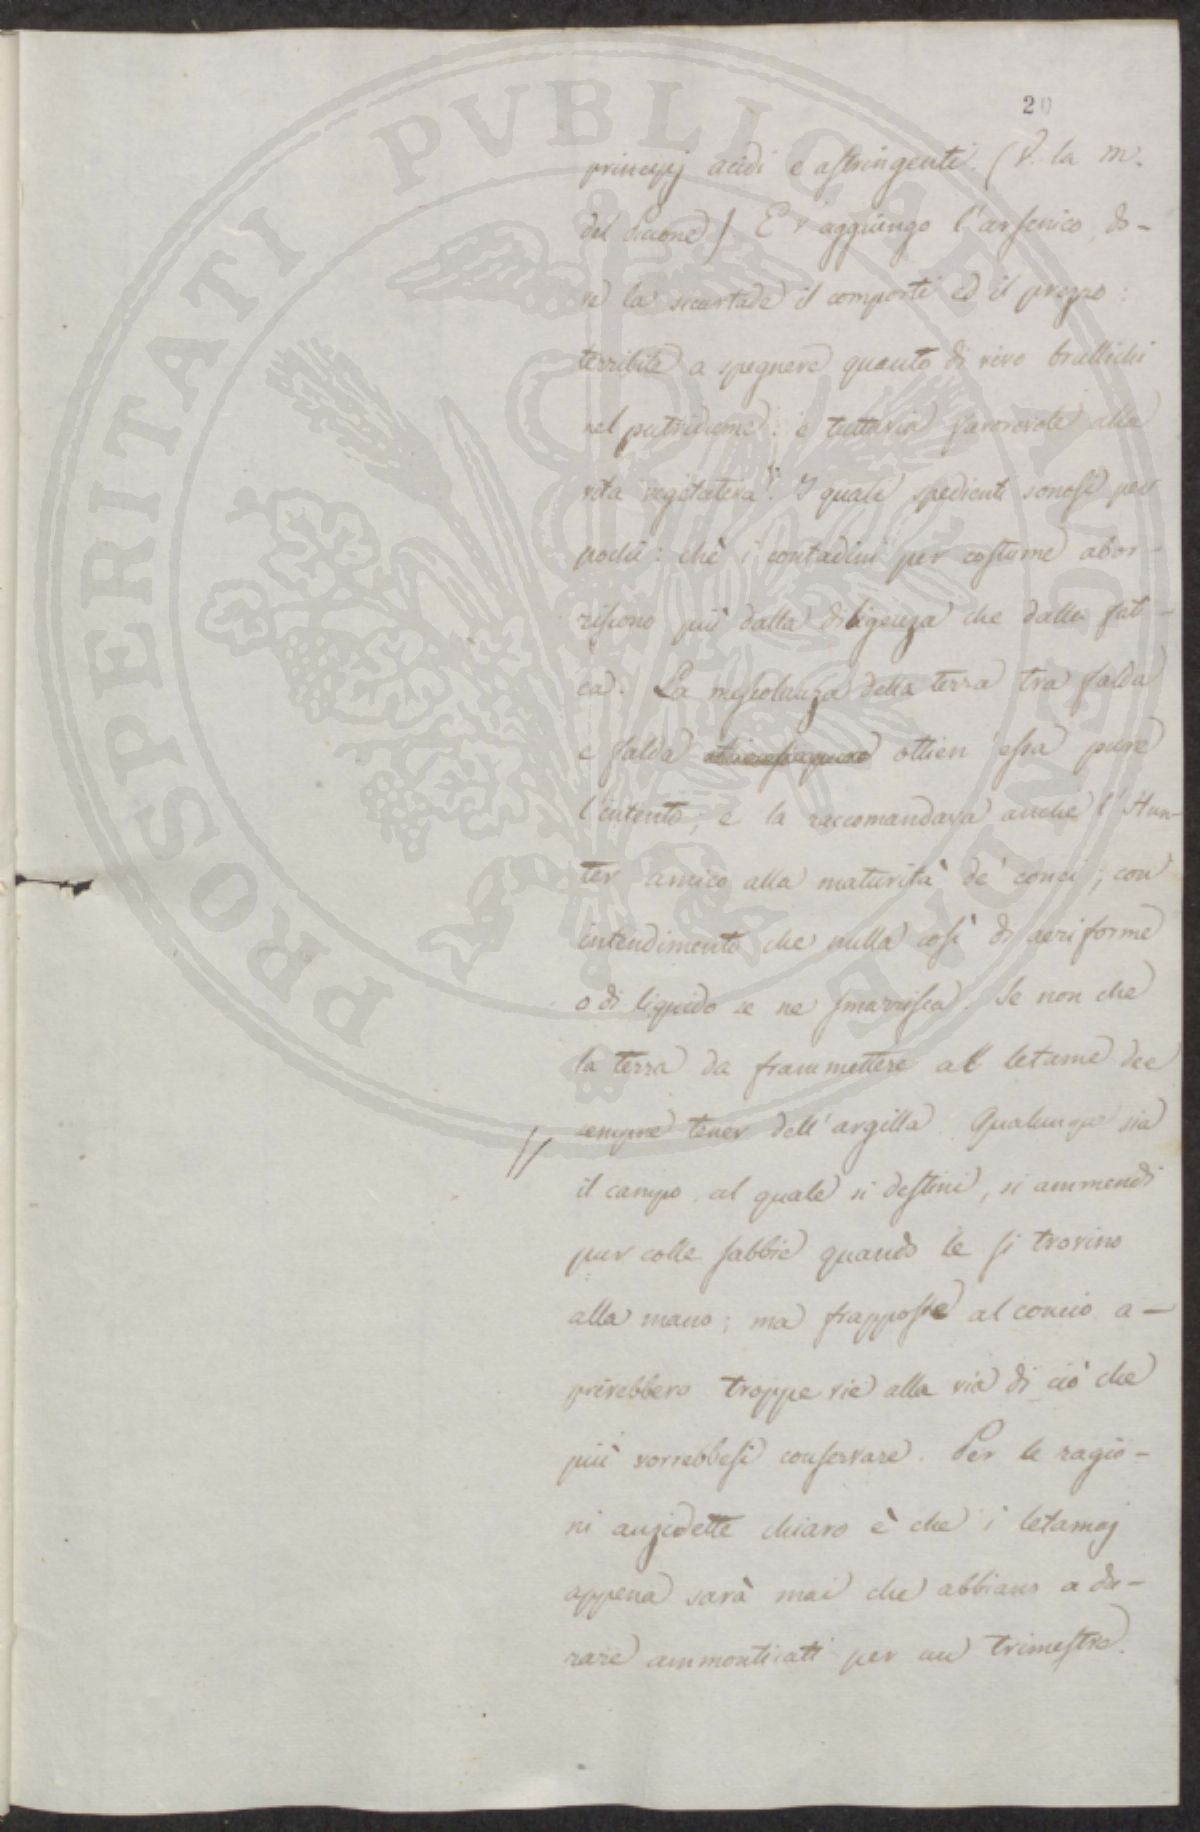 PROSPERITATI PVBLICAE AVGENDAE
20
principj acidi e astringenti. (V. la m.
del ). E v'aggiungo l'arsenico, do-
ve la sicurtade il comporti ed il prezzo:
terribile a spegnere quanto di vivo brullichi
nel putridume: e tuttavia favorevole alla
vita vegetativa. I quali spedienti sonosi per
pochi: chè i contadini per costume abor-
riscono più dalla diligenza che dalla fati-
ca. La mescolanza della terra tra falda
e falda ottien essa pure
l'intento, e la raccomandava anche l'Hun-
ter amico alla maturità de' conci; con
intendimento che nulla così di aeriforme
o di liquido se ne smarrisca. Se non che
la terra da frammettere al letame dee
sempre tener dell'argilla. Qualunque sia
il campo, al quale si destini, si ammendi
pur colle sabbie quando le si trovino
alla mano; ma frapposte al concio a-
prirebbero troppe vie alla via di ciò che
più vorrebbesi conservare. Per le ragio-
ni anzidette chiaro è che i letamaj
appena sarà mai che abbiano a du-
rare ammonticati per un trimestre.